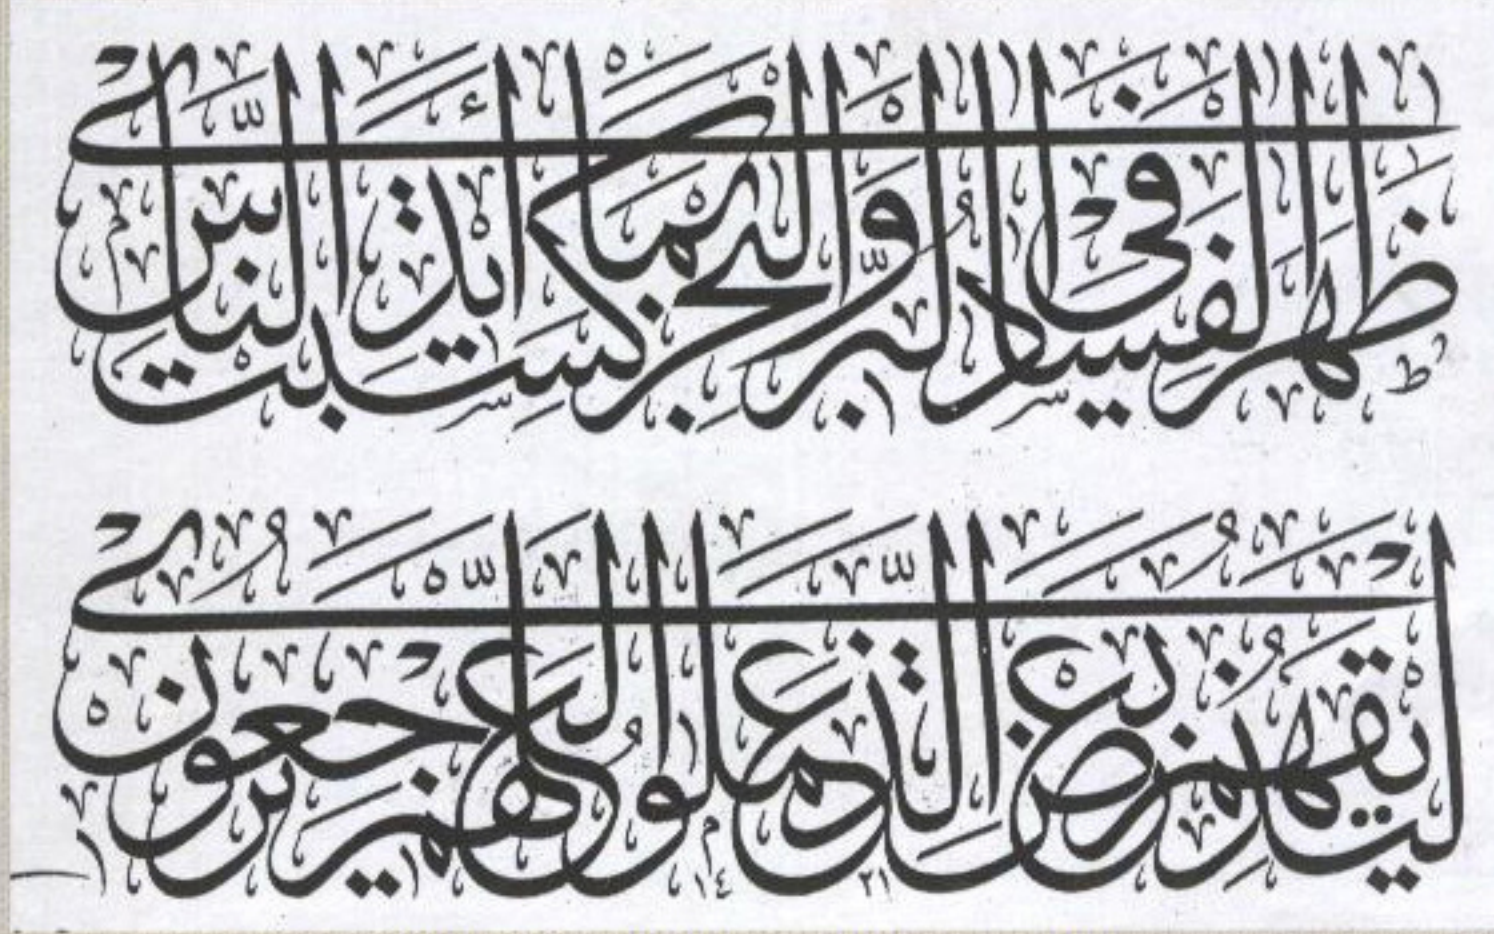 ظهر الفساد في البر والبحر بما كسبت ايدي الناس
ليذيقهم بعض الذي عملوا لعلهم يرجعون